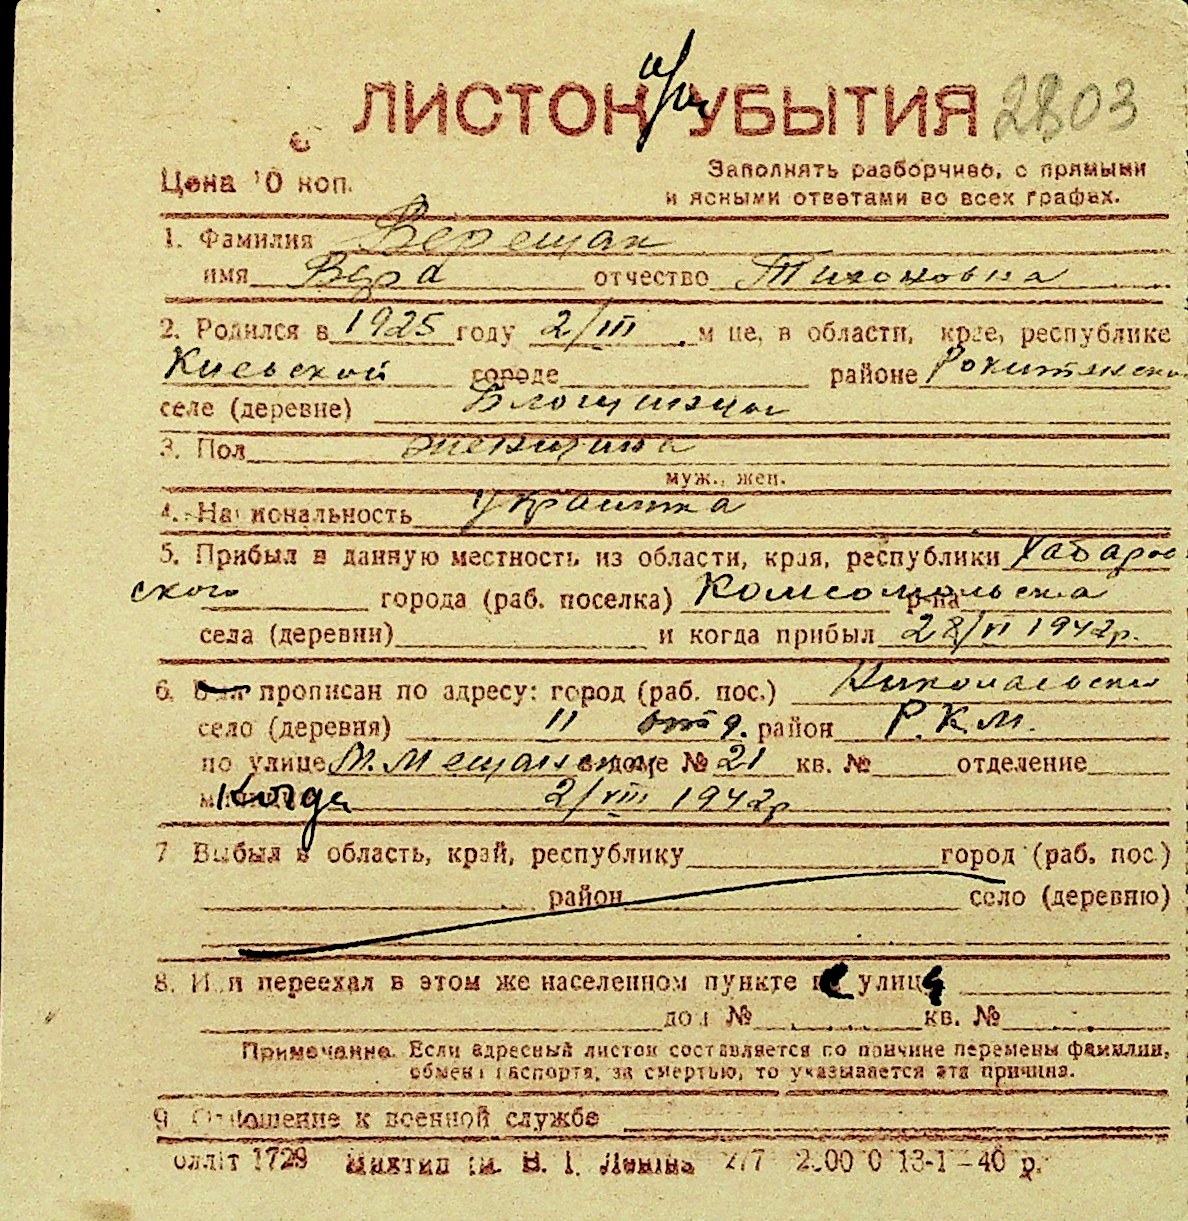 ЛИСТОК УБЫТИЯ 2803
Цена 10 коп.
Заполнять разборчиво, с прямыми
и ясными ответами во всех графах.
1. Фамилия Верещак
имя Вера отчество Тихоновна
2. Родился в 1925 году 2/III м це, в области, крае, республике
Киевской городе районе Рокитянско
селе (деревне) Блощинцы
3. Пол женщина
муж., жен.
4. Национальность украинка
5. Прибыл в данную местность из области, края, республики Хабаров
ского города (раб. поселка) Комсомольска р-на
села (деревни) и когда прибыл 28/VI 1942г.
6. Был прописан по адресу: город (раб. пос.) Никольский
село (деревня) II отд. район Р.К.М.
по улице М. Мещанская в доме № 21 кв. № отделение
Когда 2/VIII 1942г
7 Выбыл в область, край, республику город (раб. пос.)
район село (деревню)
8. Или переехал в этом же населенном пункте с улицы
дом № кв. №
Примечание. Если адресный листок составляется по причине перемены фамилии,
обмена паспорта, за смертью, то указывается эта причина.
9. Отношение к военной службе
оллiт 1729 ім. В. І. Леніна 277 13-1-40 р.